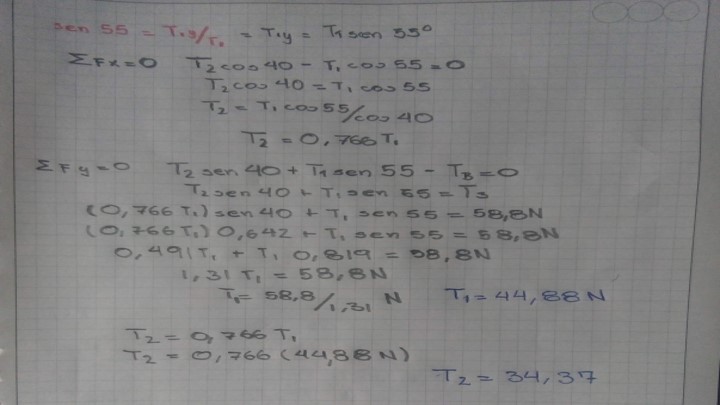 sen 55 = T₁y/T₁ = T₁y = T₁ sen 55°
ΣFx=0 T₂ cos 40 - T₁ cos 55 = 0
T₂ cos 40 = T₁ cos 55
T₂ = T₁ cos 55/cos 40
T₂ = 0,766 T₁
ΣFy=0 T₂ sen 40 + T₁ sen 55 - T₃ = 0
T₂ sen 40 + T₁ sen 55 = T₃
(0,766 T₁) sen 40 + T₁ sen 55 = 58,8N
(0,766 T₁) 0,642 + T₁ sen 55 = 58,8N
0,491 T₁ + T₁ 0,819 = 58,8N
1,31 T₁ = 58,8N
T₁ = 58,8/1,31 N T₁ = 44,88 N
T₂ = 0,766 T₁
T₂ = 0,766 (44,88 N)
T₂ = 34,37